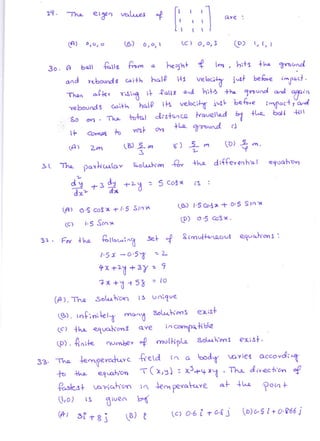 29. The eigen values of [1 1 1
1 1 1
1 1 1] are :
(A) 0,0,0 (B) 0,0,1 (C) 0,0,3 (D) 1,1,1
30. A ball falls from a height of 1m, hits the ground
and rebounds with half its velocity just before impact.
Then after rising it falls and hits the ground and again
rebounds with half its velocity just before impact, and
so on. The total distance travelled by the ball till
it comes to rest on the ground is
(A) 2m (B) 5/3 m (C) 5/2 m (D) 5/4 m.
31. The particular solution for the differential equation
d²y/dx² + 3 dy/dx + 2y = 5 cosx is :
(A) 0.5 cosx + 1.5 Sinx (B) 1.5 Cosx + 0.5 Sinx
(C) 1.5 Sinx (D) 0.5 Cosx.
32. For the following set of Simultaneous equations :
1.5x - 0.5y = 2
4x + 2y + 3z = 9
7x + y + 5z = 10
(A). The Solution is unique
(B). infinitely many Solutions exist
(C) the equations are incompatible
(D). finite number of multiple Solutions exist.
33. The temperature field in a body varies according
to the equation T(x,y) = x³+4xy. The direction of
fastest variation in temperature at the point
(1,0) is given by
(A) 3i + 8j (B) i (C) 0.6i + 0.8j (D) 0.5i + 0.866j